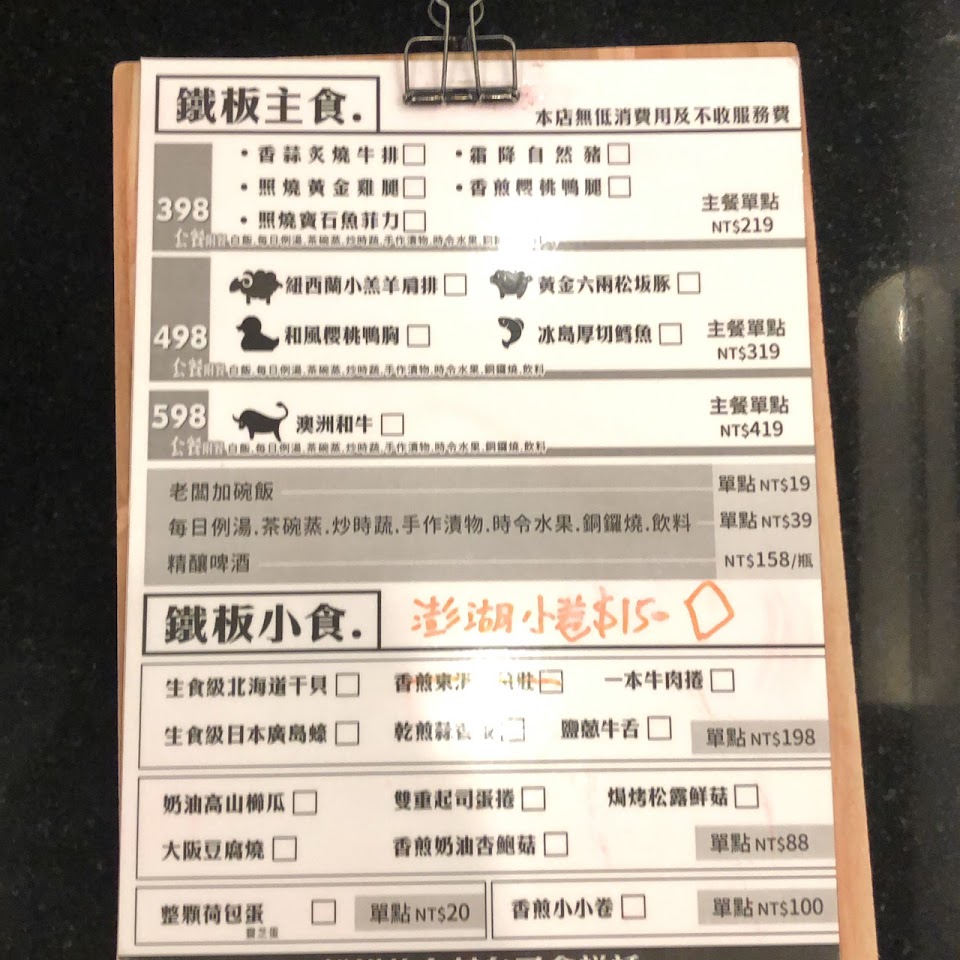 鐵板主食.
本店無低消費用及不收服務費
398
• 香蒜炙燒牛排 • 霜降自然豬
• 照燒黃金雞腿 • 香煎櫻桃鴨腿
• 照燒寶石魚菲力
主餐單點
NT$219
套餐附贈 白飯.每日例湯.茶碗蒸.炒時蔬.手作漬物.時令水果.銅
498
紐西蘭小羔羊肩排 黃金六兩松坂豚
和風櫻桃鴨胸 冰島厚切鱈魚
主餐單點
NT$319
套餐附贈 白飯.每日例湯.茶碗蒸.炒時蔬.手作漬物.時令水果.銅鑼燒.飲料
598
澳洲和牛
主餐單點
NT$419
套餐附贈 白飯.每日例湯.茶碗蒸.炒時蔬.手作漬物.時令水果.銅鑼燒.飲料
老闆加碗飯 單點 NT$19
每日例湯.茶碗蒸.炒時蔬.手作漬物.時令水果.銅鑼燒.飲料 單點 NT$39
精釀啤酒 NT$158/瓶
鐵板小食.
澎湖小卷$150
生食級北海道干貝 香煎東 一本牛肉捲
生食級日本廣島蠔 乾煎蒜 鹽蔥牛舌 單點 NT$198
奶油高山櫛瓜 雙重起司蛋捲 焗烤松露鮮菇
大阪豆腐燒 香煎奶油杏鮑菇 單點 NT$88
整顆荷包蛋 單點 NT$20 香煎小小卷 單點 NT$100
靈芝蛋